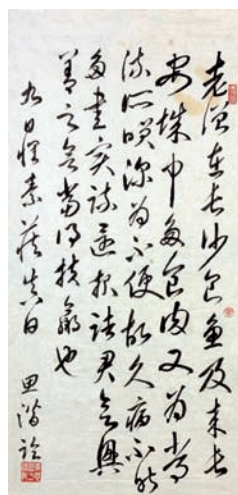 老僧在長沙食魚及來長
安城中多食肉又為常
流所咲深為不便故久病不能
多書實疎還報諸君欲興
善之會當得扶羸也
九日懷素藏真白